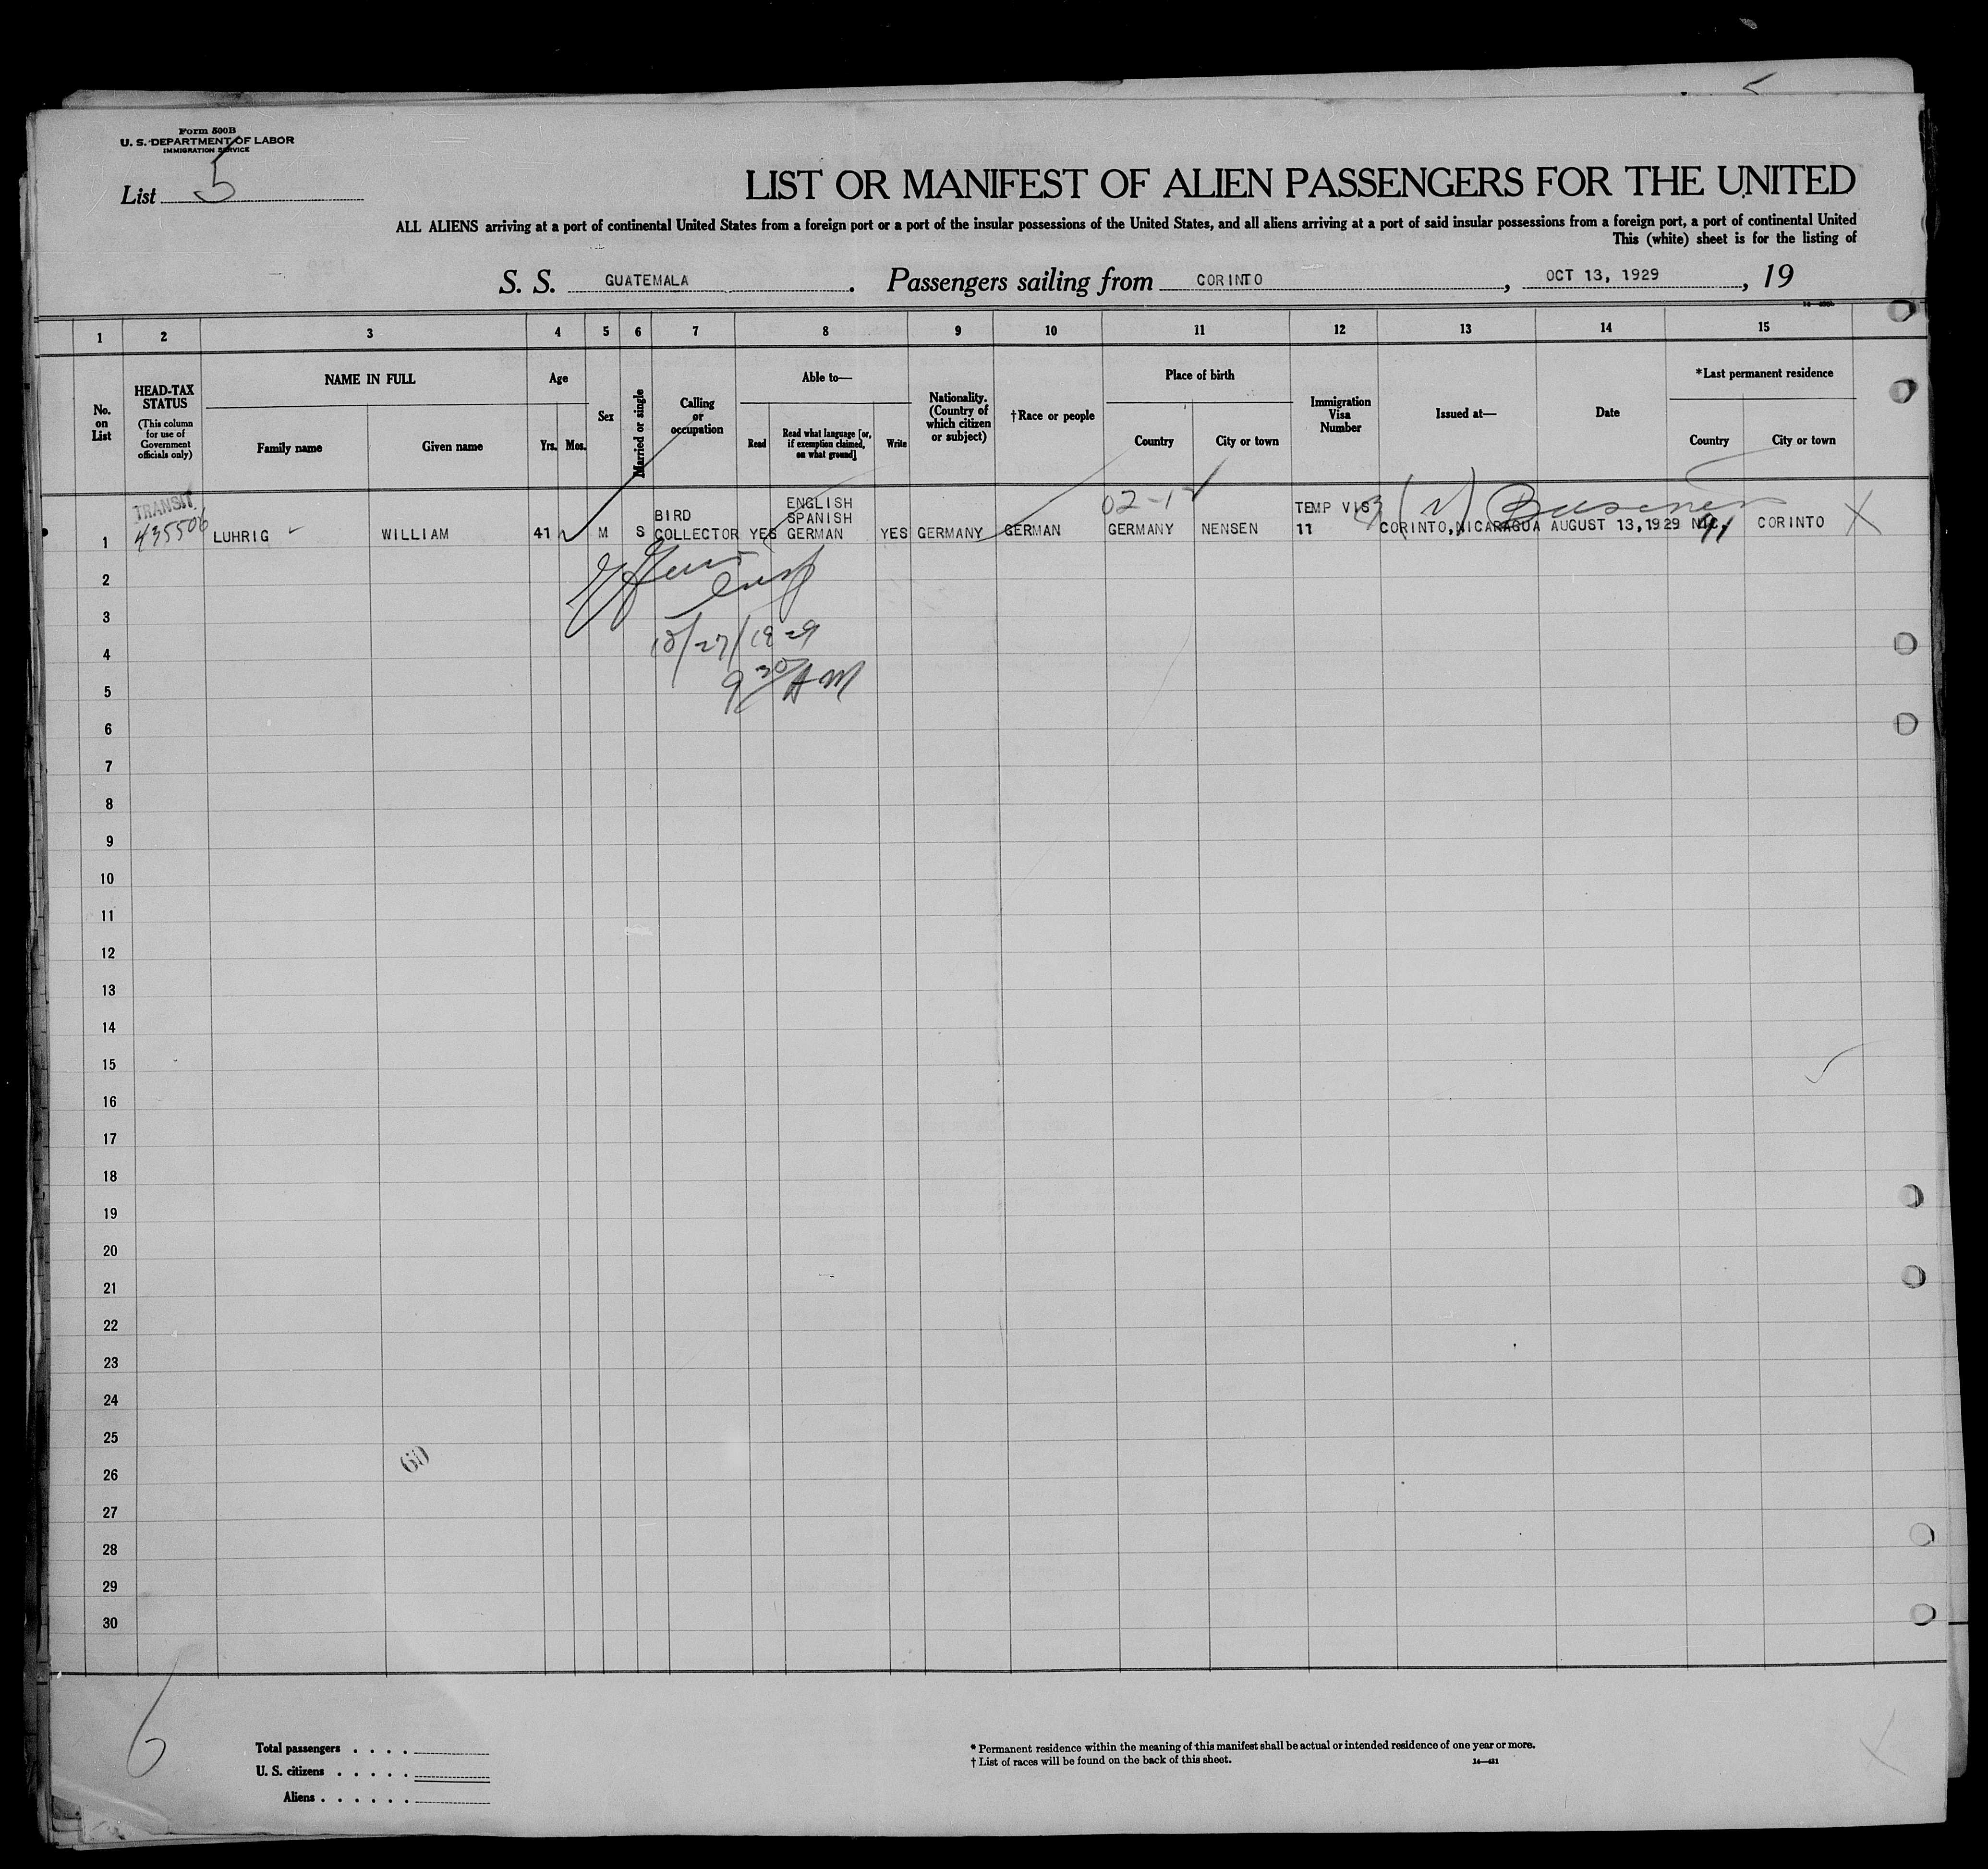 Form 500B
U. S. DEPARTMENT OF LABOR
IMMIGRATION SERVICE
List 5
LIST OR MANIFEST OF ALIEN PASSENGERS FOR THE UNITED
ALL ALIENS arriving at a port of continental United States from a foreign port or a port of the insular possessions of the United States, and all aliens arriving at a port of said insular possessions from a foreign port, a port of continental United
This (white) sheet is for the listing of
S. S. GUATEMALA . Passengers sailing from CORINTO , OCT 13, 1929 , 19
1 2 3 4 5 6 7 8 9 10 11 12 13 14 15
No. on List
HEAD-TAX STATUS
(This column for use of Government officials only)
NAME IN FULL
Family name Given name
Age
Yrs. Mos.
Sex
Married or single
Calling or occupation
Able to—
Read
Read what language [or, if exemption claimed, on what ground]
Write
Nationality. (Country of which citizen or subject)
†Race or people
Place of birth
Country City or town
Immigration Visa Number
Issued at—
Date
*Last permanent residence
Country City or town
TRANSIT
435506
1 LUHRIG WILLIAM 41 M S BIRD COLLECTOR YES ENGLISH SPANISH GERMAN YES GERMANY GERMAN GERMANY NENSEN TEMP VIS 11 CORINTO, NICARAGUA AUGUST 13, 1929 NIC. CORINTO
02-1
91
2
3
10/27/1929
4
9 30/AM
5
6
7
8
9
10
11
12
13
14
15
16
17
18
19
20
21
22
23
24
25
60
26
27
28
29
30
6
Total passengers . . . .
U. S. citizens . . . . .
Aliens . . . . . .
* Permanent residence within the meaning of this manifest shall be actual or intended residence of one year or more.
† List of races will be found on the back of this sheet.
14—431